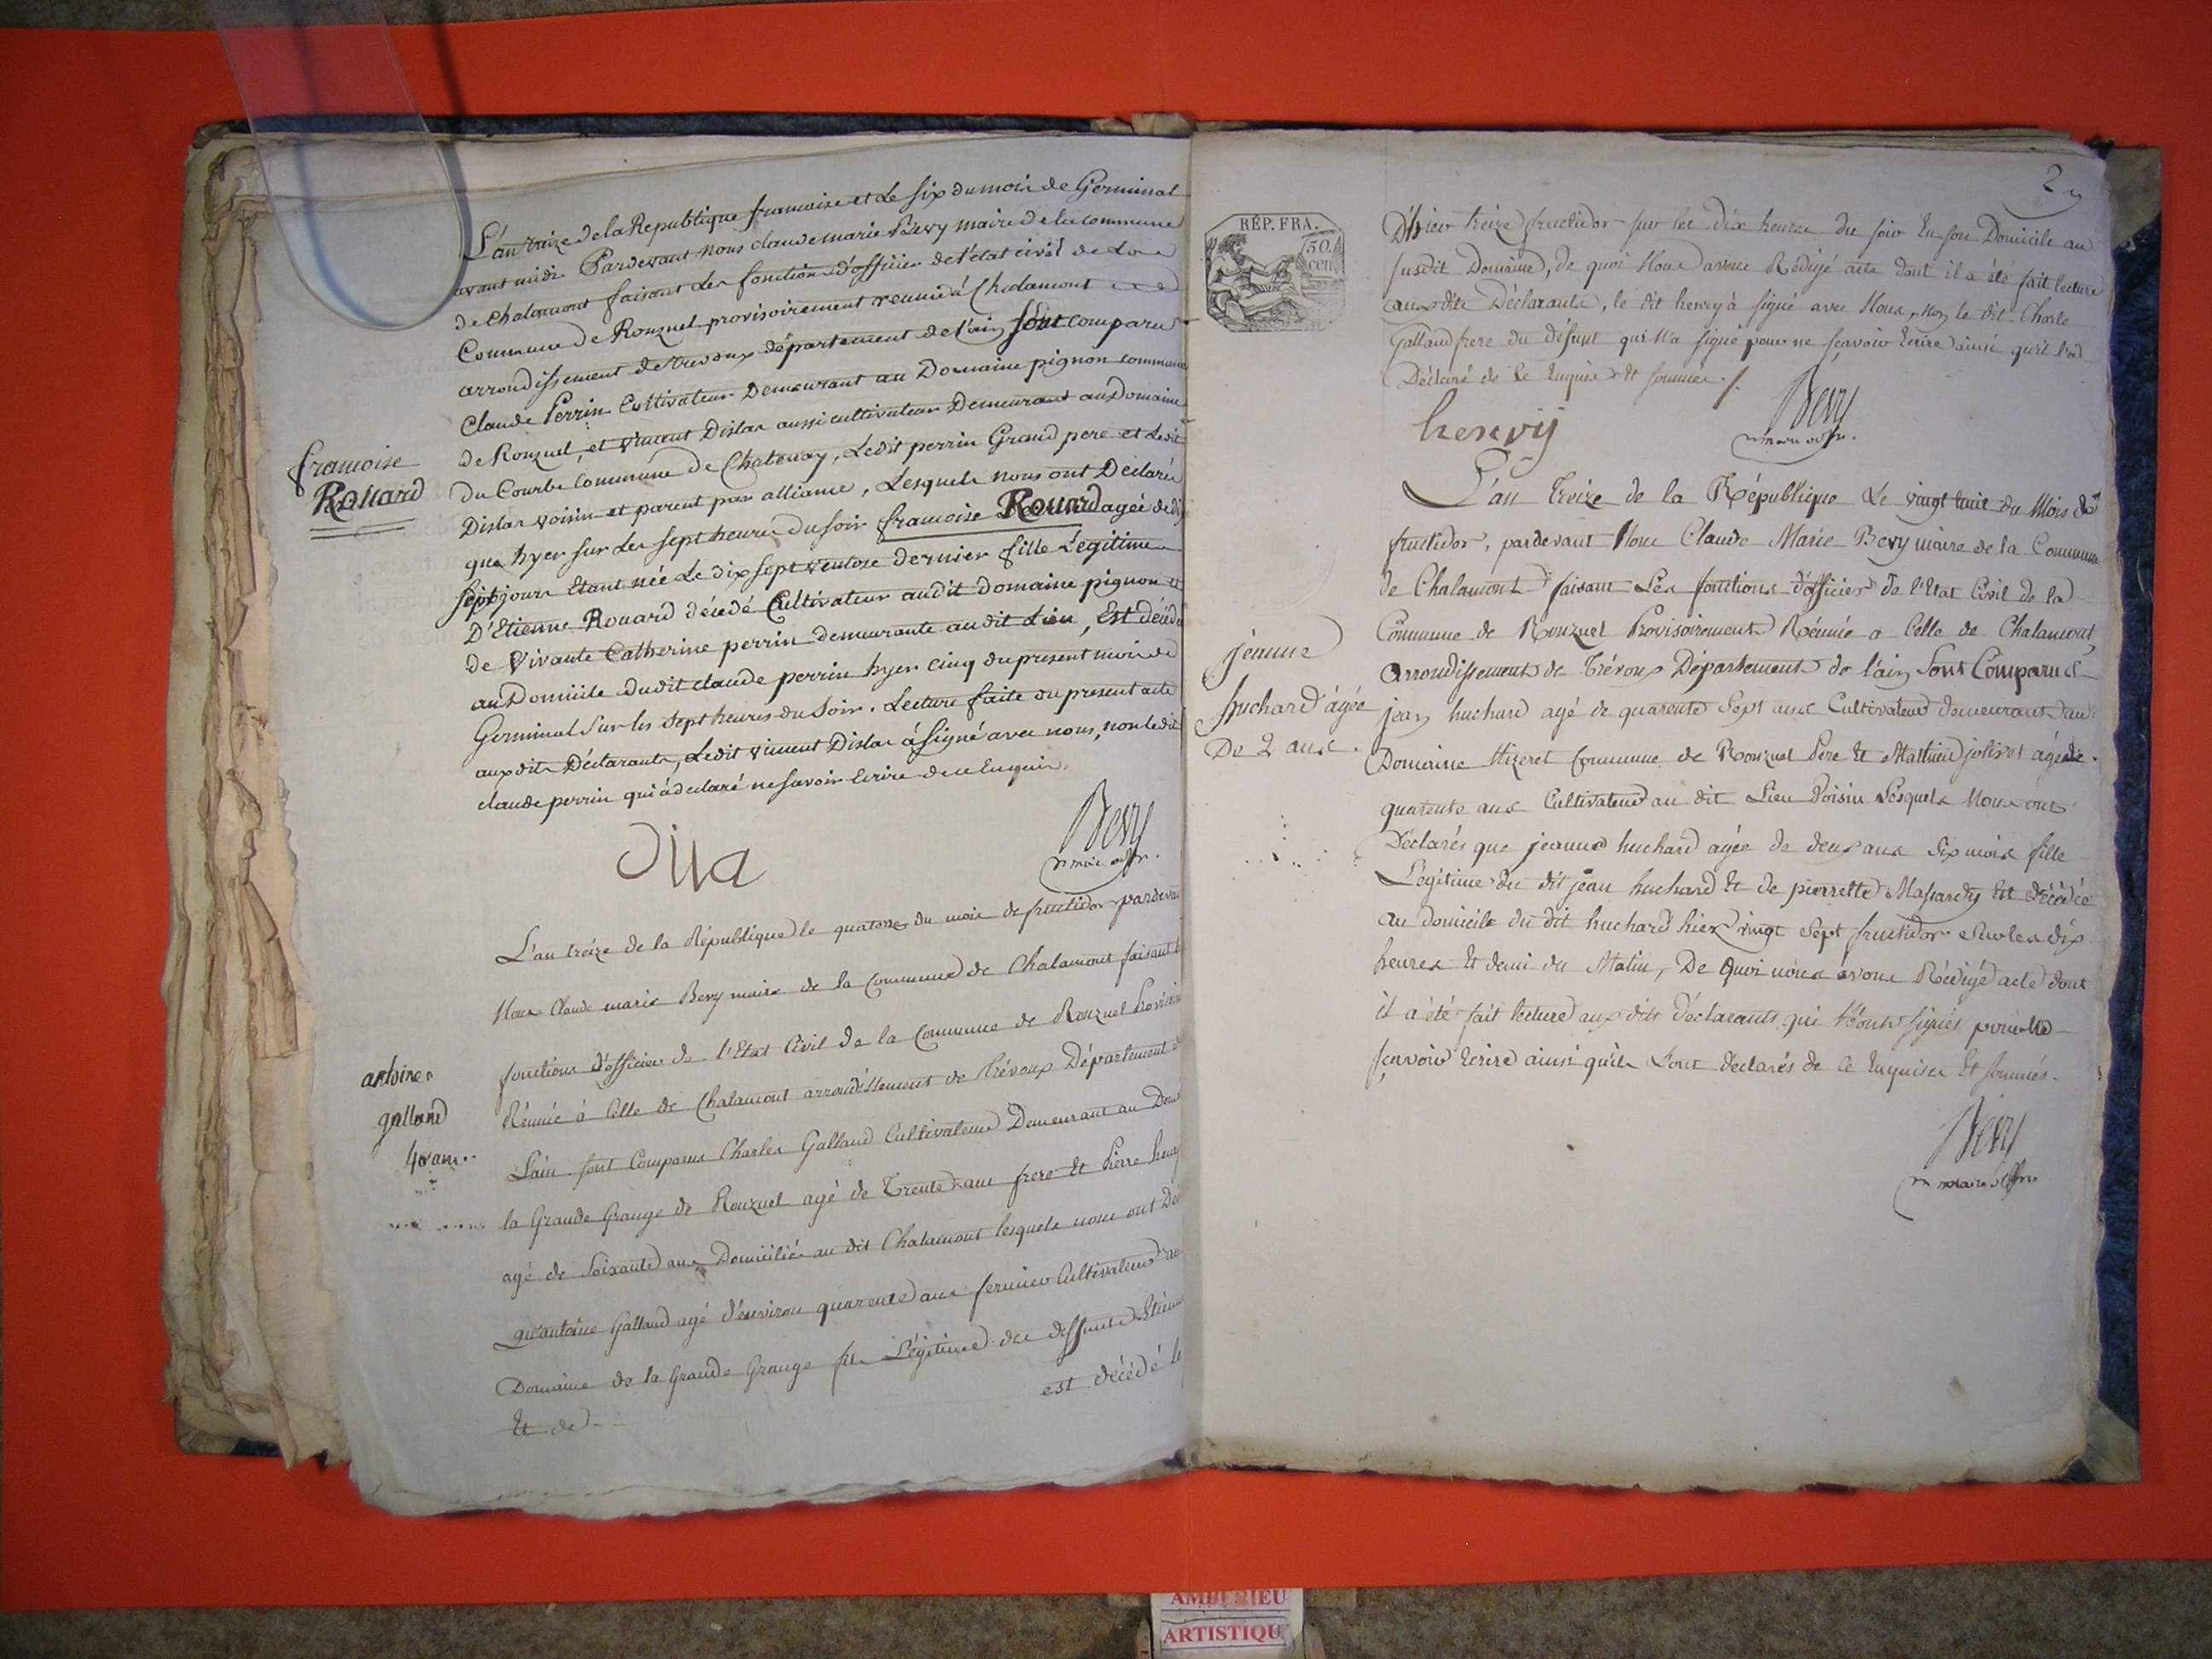 L'an treize de la Republique francoise et Le six du mois de Germinal
avant midi Pardevant Nous claude marie Bevy maire de la commune
de Chalamont faisant Les fonctions d'officier de l'état civil de La
Commune de Ronzuel provisoirement reunie à Chalamont
arrondissement de trevoux département de l'ain sont comparus
Claude Perrin Cultivateur Demeurant au Domaine pignon commune
de Ronzuel, et vincent Dislar aussi cultivateur Demeurant au Domaine
du Courbe Commune de Chatenay, Ledit perrin Grand pere et Ledit
Dislar voisin et parent par alliance, Lesquels nous ont Déclarés
que hyer sur Les sept heures du soir francoise Rouard agée de dix
sept jours Etant née Le dix sept ventose dernier fille Légitime
D'Etienne Rouard décedé Cultivateur au dit domaine pignon et
de vivante Catherine perrin demeurante au dit Lieu, Est décedé
au Domicile du dit claude perrin hyer cinq du present mois de
Germinal Sur les sept heures du Soir. Lecture faite du present acte
aux dits Déclarants, Ledit vincent Dislar à Signé avec nous, non le dit
claude perrin qui à déclaré ne savoir Ecrire de ce Enquis.
francoise
Rouard
Bevy
L'an treize de la République le quatorze du mois de fructidor pardevant
Nous Claude marie Bevy maire de la Commune de Chalamont faisant les
fonctions d'officier de l'Etat Civil de la Commune de Ronzuel Provisoire
Réunie à Celle de Chalamont arrondissement de Trévoux Département de
Lain sont Comparus Charles Galland Cultivateur Demeurant au Dom
la Grande Grange de Ronzuel agé de Trente ans frere Et Pierre henry
agé de soixante ans Domicilié au dit Chalamont lesquels nous ont Dé
qu'antoine Galland agé d'environ quarente ans fermier Cultivateur au
Domaine de la Grande Grange fils Légitime de deffunts Etienne
Et de est décédé le
antoine
galland
40 ans
RÉP. FRA.
50.
cen.
2
D'hier treize fructidor sur les dix heures du soir En son Domicile au
susdit Domaine, de quoi Nous avons Rédigé acte dont il a été fait lecture
aux dits Déclarants, le dit henry à signé avec Nous, non le dit Charle
Galland frere du défunt qui N'a signé pour ne sçavoir Ecrire ainsi qu'il l'a
Déclaré de ce Enquis et sommé.
henry
Bevy
L'an treize de la République Le vingt huit du Mois de
fructidor, pardevant Nous Claude Marie Bevy maire de la Commune
de Chalamont faisant Les fonctions d'officier de l'Etat Civil de la
Commune de Ronzuel Provisoirement Réunie a Celle de Chalamont,
arrondissement de Trévoux Département de l'ain Sont Comparus
jean huchard agé de quarente Sept ans Cultivateur demeurant au
Domaine Mizeret Commune de Ronzuel Pere Et Mathieu jolivet agé de
quarente ans Cultivateur au dit Lieu Voisin Lesquels Nous ont
Déclarés que jeanne huchard agée de deux ans Six mois fille
Légitime du dit jean huchard Et de pierrette Massardy Est décédée
au domicile du dit huchard hier vingt Sept fructidor Sur les dix
heures Et demi du Matin, De Quoi nous avons Rédigé acte dont
il a été fait lecture aux dits déclarants qui N'ont signés pour Ne
sçavoir Ecrire ainsi qu'ils L'ont déclarés de ce Enquiser Et sommés.
jeanne
huchard agée
De 2 ans.
Bevy
AMBERIEU
ARTISTIQU